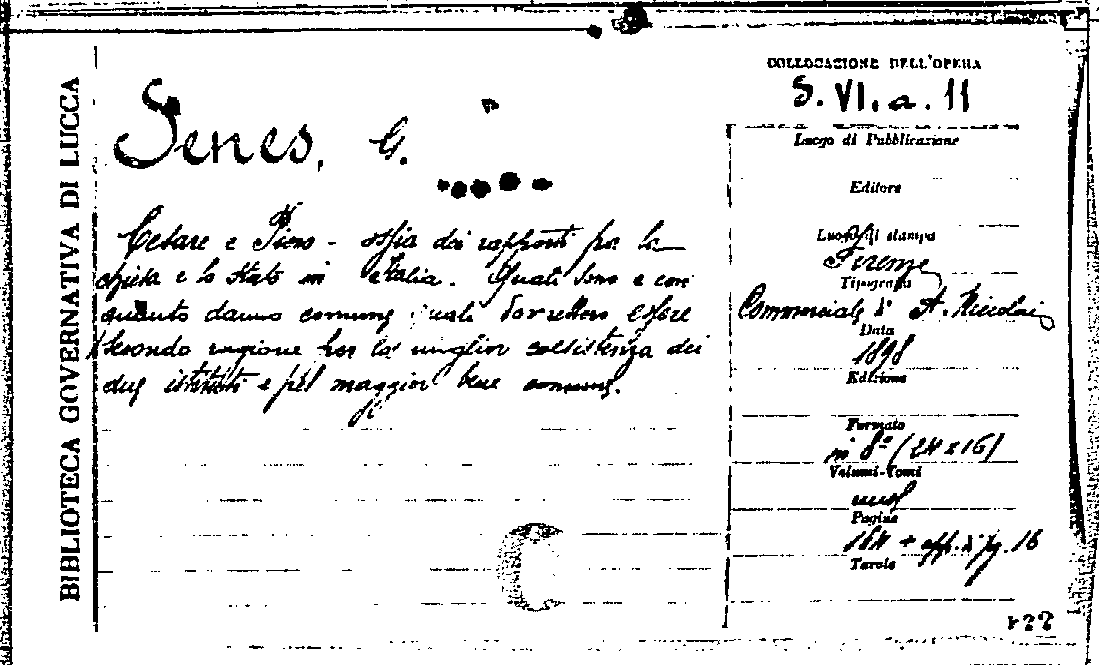 BIBLIOTECA GOVERNATIVA DI LUCCA
Senes, G.
Cesare e Piero - ossia dei rapporti fra la
chiesa e lo Stato in Italia. Quali sono e con
quanto danno comune quali dovrebbero essere
secondo ragione per la miglior sussistenza dei
due istituti e pel maggior bene comune.
COLLOCAZIONE DELL'OPERA
S. VI. a. 11
Luogo di Pubblicazione
Editore
Luogo di stampa
Firenze
Tipografia
Commerciale di A. Niccolai
Data
1898
Edizione
Formato
in 8º (24 x 16)
Volumi-Tomi
uno
Pagine
164 + app. di pg. 16
Tavole